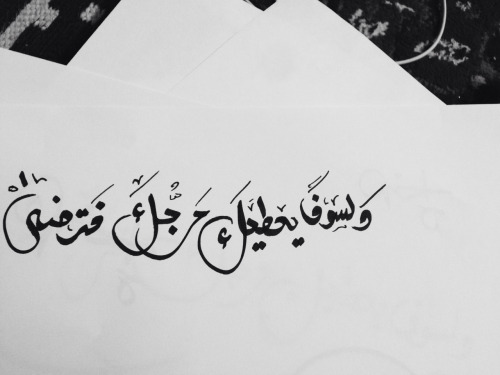 وَلسوفَ يعطيكَ رَبُّكَ فَترضىٰ